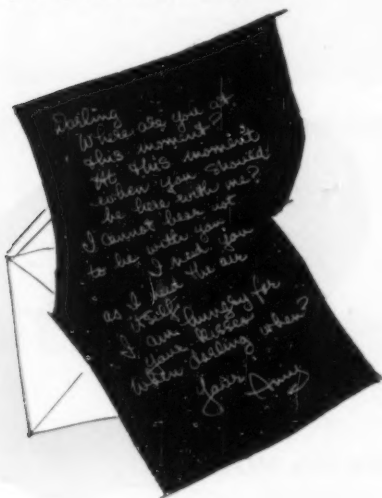 Darling
Where are you at
this moment?
At this moment
when you should
be here with me?
I cannot bear not
to be with you.
I need you
as I need the air
itself.
I am hungry for
your kisses
When darling when?
Yours Amy